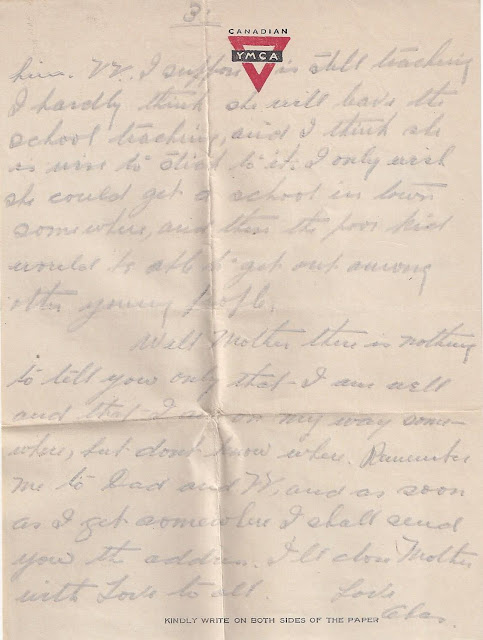 3
CANADIAN
YMCA
him. W. I suppose is still teaching
I hardly think she will leave the
school teaching, and I think she
is wise to stick to it. I only wish
she could get a school in town
somewhere, and then the poor kid
would be able to get out among
other young people.
Well Mother there is nothing
to tell you only that I am well
and that I am on my way some-
where, but don't know where. Remember
me to Dad and W, and as soon
as I get somewhere I shall send
you the address. I'll close Mother
with Love to all Love
Chas.
KINDLY WRITE ON BOTH SIDES OF THE PAPER